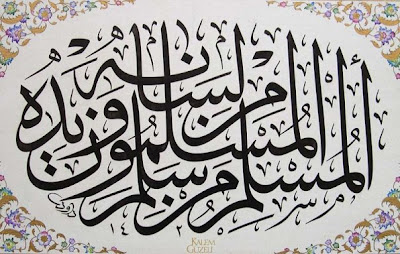 المسلم من سلم المسلمون من لسانه ويده
KALEM GÜZELİ